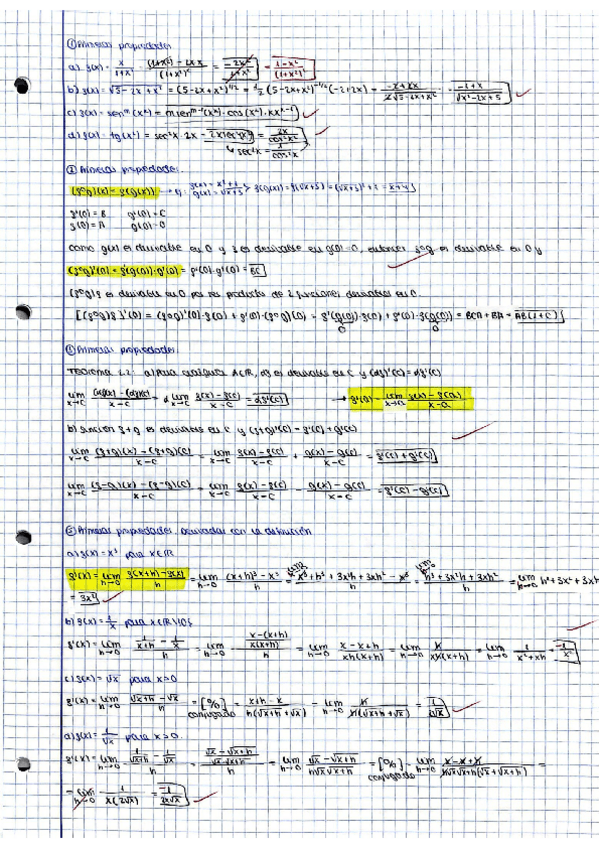 ① Primeras propiedades
a) f(x) = x/(1+x²) = ((1+x²) - 2x·x)/(1+x²)² = -2x²/(1+x²) = (1-x²)/(1+x²)²
b) f(x) = √(5-2x+x²) = (5-2x+x²)^(1/2) = ½(5-2x+x²)^(-1/2)·(-2+2x) = (-2+2x)/(2√(5-2x+x²)) = (-1+x)/√(x²-2x+5)
c) f(x) = senᵐ(xⁿ)
d) f(x) = tg(x²) = sec²x · 2x = 2x sec²(x²) = 2x/cos²x²
↳ sec²x = 1/cos²x
② Primeras propiedades.
(f∘g)(x) = f(g(x)) → f(g(x)) = f(√(x+3)) = (√(x+3))² + 1 = x+4
f'(0) = B g'(0) = C
f(0) = A g(0) = 0
Como g(x) es derivable en 0 y f es derivable en g(0)=0, entonces f∘g es derivable en 0 y
(f∘g)'(0) = f'(g(0))·g'(0) = f'(0)·g'(0) = BC
(f∘g)f es derivable en 0 por ser producto de 2 funciones derivables en 0.
[(f∘g)f]'(0) = (f∘g)'(0)·f(0) + f'(0)·(f∘g)(0) = f'(g(0))·f(0) + f'(0)·f(g(0)) = BCA + BA = AB(1+C)
Primeras propiedades.
Teorema a) Para cualquier αf es derivable en c y (αf)'(c) = αf'(c)
lim x→c ((αf)(x) - (αf)(c))/(x-c) = α lim x→c (f(x) - f(c))/(x-c) = αf'(c) → f'(a) = lim x→a (f(x) - f(a))/(x-a)
b) función f+g es derivable en c y (f+g)'(c) = f'(c) + g'(c)
lim x→c ((f+g)(x) - (f+g)(c))/(x-c) = lim x→c (f(x) - f(c))/(x-c) + (g(x) - g(c))/(x-c) = f'(c) + g'(c)
lim x→c ((f-g)(x) - (f-g)(c))/(x-c) = lim x→c (f(x) - f(c))/(x-c) - (g(x) - g(c))/(x-c) = f'(c) - g'(c)
Primeras propiedades. derivadas con la definición
a) f(x) = x³ para x∈ℝ
f'(x) = lim h→0 (f(x+h) - f(x))/h = lim h→0 ((x+h)³ - x³)/h = (x³+h³+3x²h+3xh²-x³)/h = (h³+3x²h+3xh²)/h = lim h→0 h²+3x²+3xh
= 3x²
b) f(x) = 1/x para x∈ℝ\{0}
f'(x) = lim h→0 (1/(x+h) - 1/x)/h = lim h→0 = lim h→0 (x-x-h)/(xh(x+h)) = lim h→0 = lim h→0 = -1/x²
c) f(x) = √x para x>0
f'(x) = lim h→0 (√(x+h) - √x)/h = [0/0] conjugado = (x+h-x)/(h(√(x+h)+√x)) = lim h→0 h/(h(√(x+h)+√x)) = 1/(2√x)
d) f(x) = 1/√x para x>0
f'(x) = lim h→0 (1/√(x+h) - 1/√x)/h = lim h→0 (√x - √(x+h))/(h√x√(x+h)) = [0/0] conjugado =
= lim h→0 = -1/(2x√x)